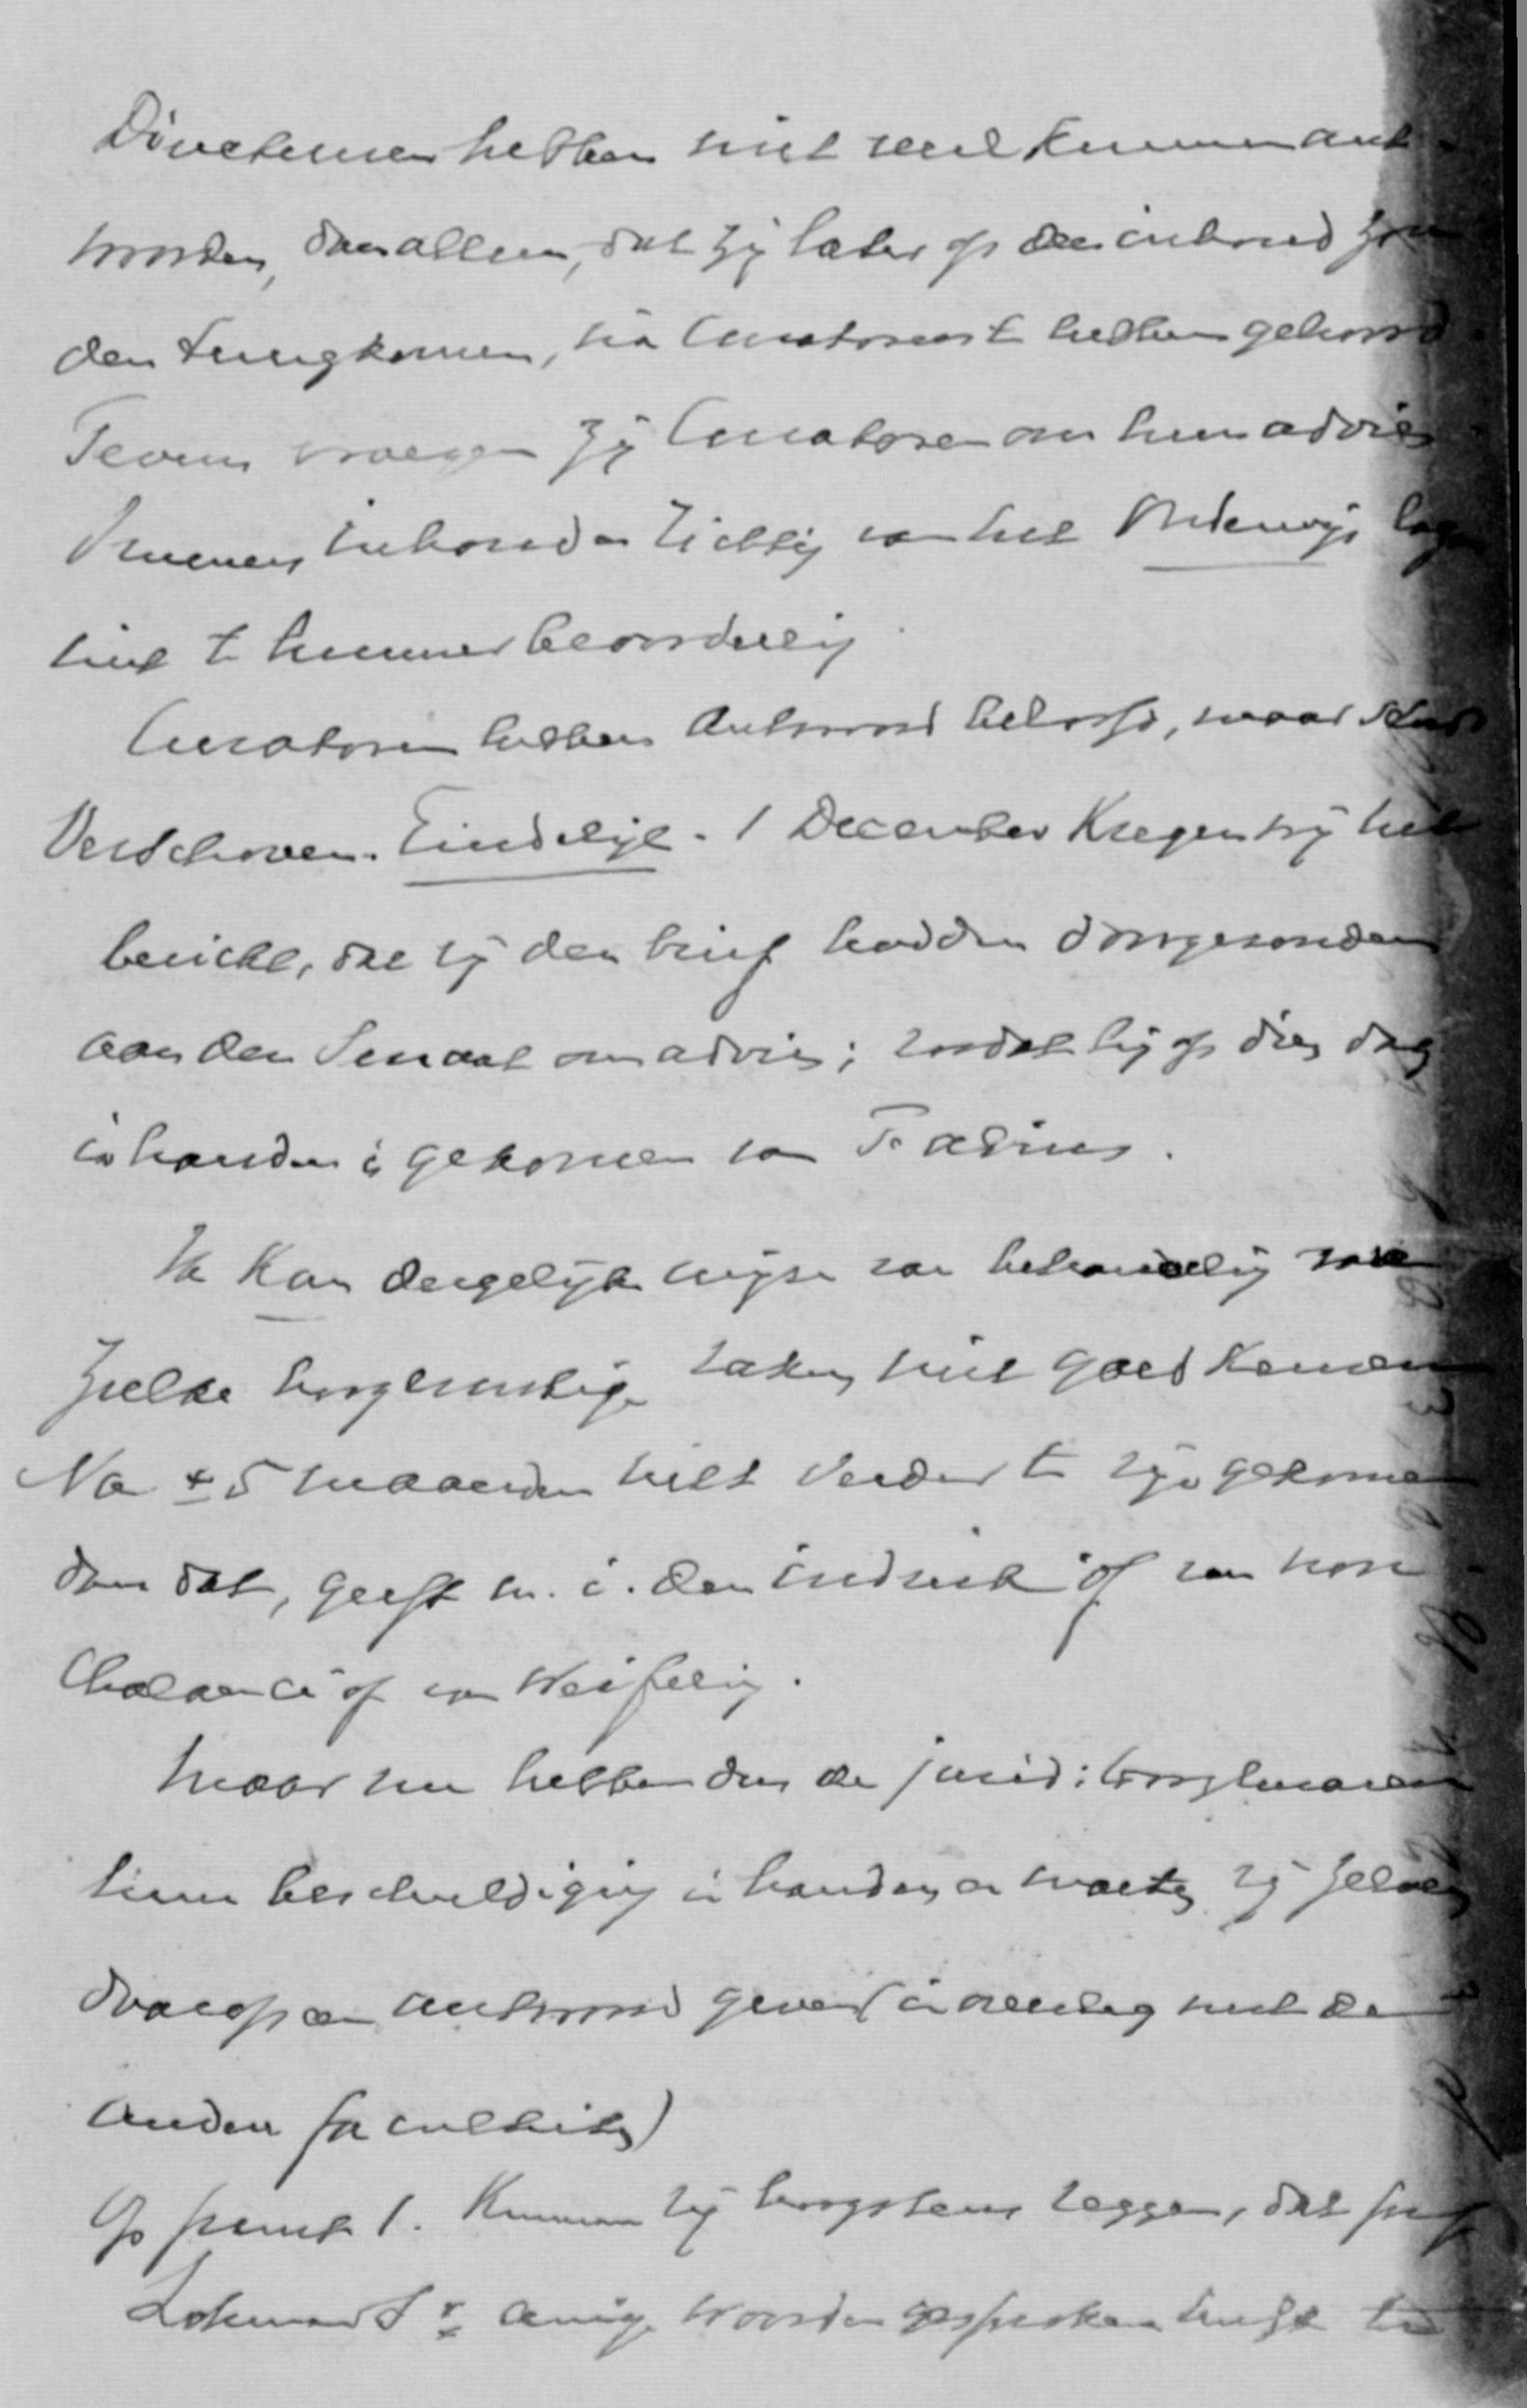 Directeuren hebben niet veel kunnen ant-
woorden, dan alleen, dat zij later op den inhoud zou
den terugkomen, na Curatoren te hebben gehoord.
Tevens vroegen zij Curatoren om hun advies.
Immers inhoud en richting van het Onderwijs lag
niet te hunner beoordeeling.
Curatoren hebben Antwoord beloofd, maar steeds
Verschoven. Eindelijk - 1 December Kregen wij het
bericht, dat zij den brief hadden doorgezonden
aan den Senaat om advies; zoodat hij op dien dag
in handen is gekomen van Fabius.
Ik Kan dergelijke wijze van behandeling van
zulke hoogernstige zaken niet goed Kennen
Na ± 5 maanden niet verder te zijn gekomen
dan dat, geeft m. i. den indruk òf van non-
Chalance òf van Weifeling.
Maar nu hebben dus de jurid: hoogleeraren
hun beschuldiging in handen en moeten zij zelven
daarop een antwoord geven (in overleg met de
andere faculteiten)
Op punt 1. Kunnen zij hoogstens zeggen, dat prof
Lohman Sr. eenige woorden gesproken heeft